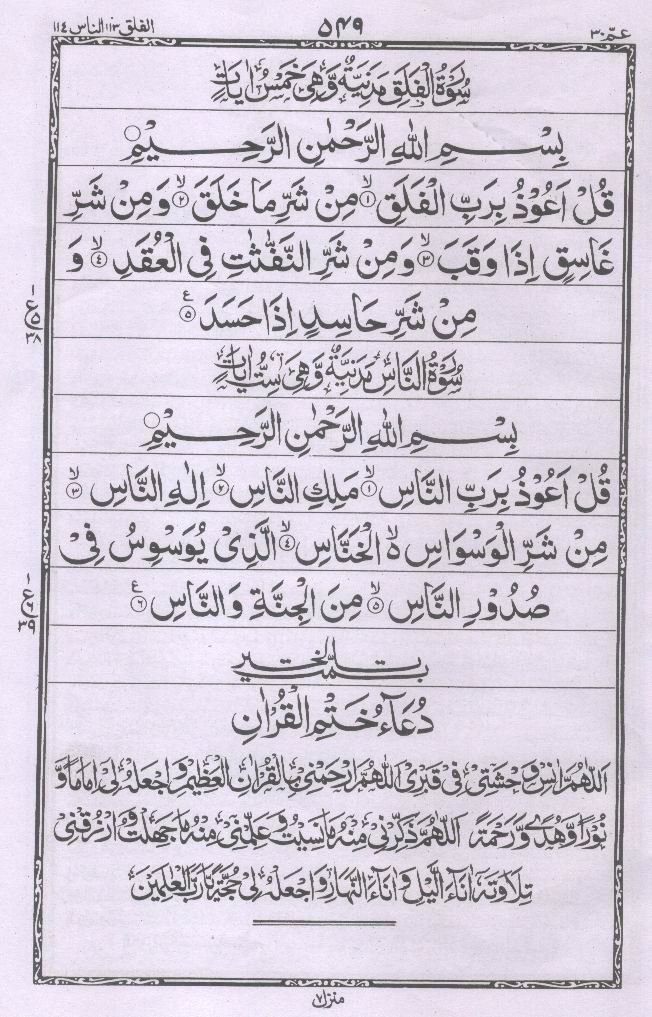 عمّ ٣٠ ٥٤٩ الفلق ١١٣ الناس ١١٤
سُوْرَةُ الْفَلَقِ مَدَنِيَّةٌ وَّهِىَ خَمْسُ اٰيَاتٍ
بِسْمِ اللّٰهِ الرَّحْمٰنِ الرَّحِيْمِ
قُلْ اَعُوْذُ بِرَبِّ الْفَلَقِ ۙ﴿١﴾ مِنْ شَرِّ مَا خَلَقَ ۙ﴿٢﴾ وَمِنْ شَرِّ
غَاسِقٍ اِذَا وَقَبَ ۙ﴿٣﴾ وَمِنْ شَرِّ النَّفّٰثٰتِ فِى الْعُقَدِ ۙ﴿٤﴾ وَ
مِنْ شَرِّ حَاسِدٍ اِذَا حَسَدَ ﴿٥﴾ ع
سُوْرَةُ النَّاسِ مَدَنِيَّةٌ وَّهِىَ سِتُّ اٰيَاتٍ
بِسْمِ اللّٰهِ الرَّحْمٰنِ الرَّحِيْمِ
قُلْ اَعُوْذُ بِرَبِّ النَّاسِ ۙ﴿١﴾ مَلِكِ النَّاسِ ۙ﴿٢﴾ اِلٰهِ النَّاسِ ۙ﴿٣﴾
مِنْ شَرِّ الْوَسْوَاسِ ۵ۙ الْخَنَّاسِ ۙ﴿٤﴾ الَّذِىْ يُوَسْوِسُ فِىْ
صُدُوْرِ النَّاسِ ۙ﴿٥﴾ مِنَ الْجِنَّةِ وَالنَّاسِ ﴿٦﴾ ع
تمت بالخير
دُعَآءُ خَتْمِ الْقُرْاٰنِ
اَللّٰهُمَّ اٰنِسْ وَحْشَتِىْ فِىْ قَبْرِىْ اَللّٰهُمَّ ارْحَمْنِىْ بِالْقُرْاٰنِ الْعَظِيْمِ وَاجْعَلْهُ لِىْ اِمَامًا وَّ
نُوْرًا وَّهُدًى وَّرَحْمَةً اَللّٰهُمَّ ذَكِّرْنِىْ مِنْهُ مَا نَسِيْتُ وَعَلِّمْنِىْ مِنْهُ مَا جَهِلْتُ وَارْزُقْنِىْ
تِلَاوَتَهٗ اٰنَآءَ الَّيْلِ وَاٰنَآءَ النَّهَارِ وَاجْعَلْهُ لِىْ حُجَّةً يَّارَبَّ الْعٰلَمِيْنَ
منزل ٧